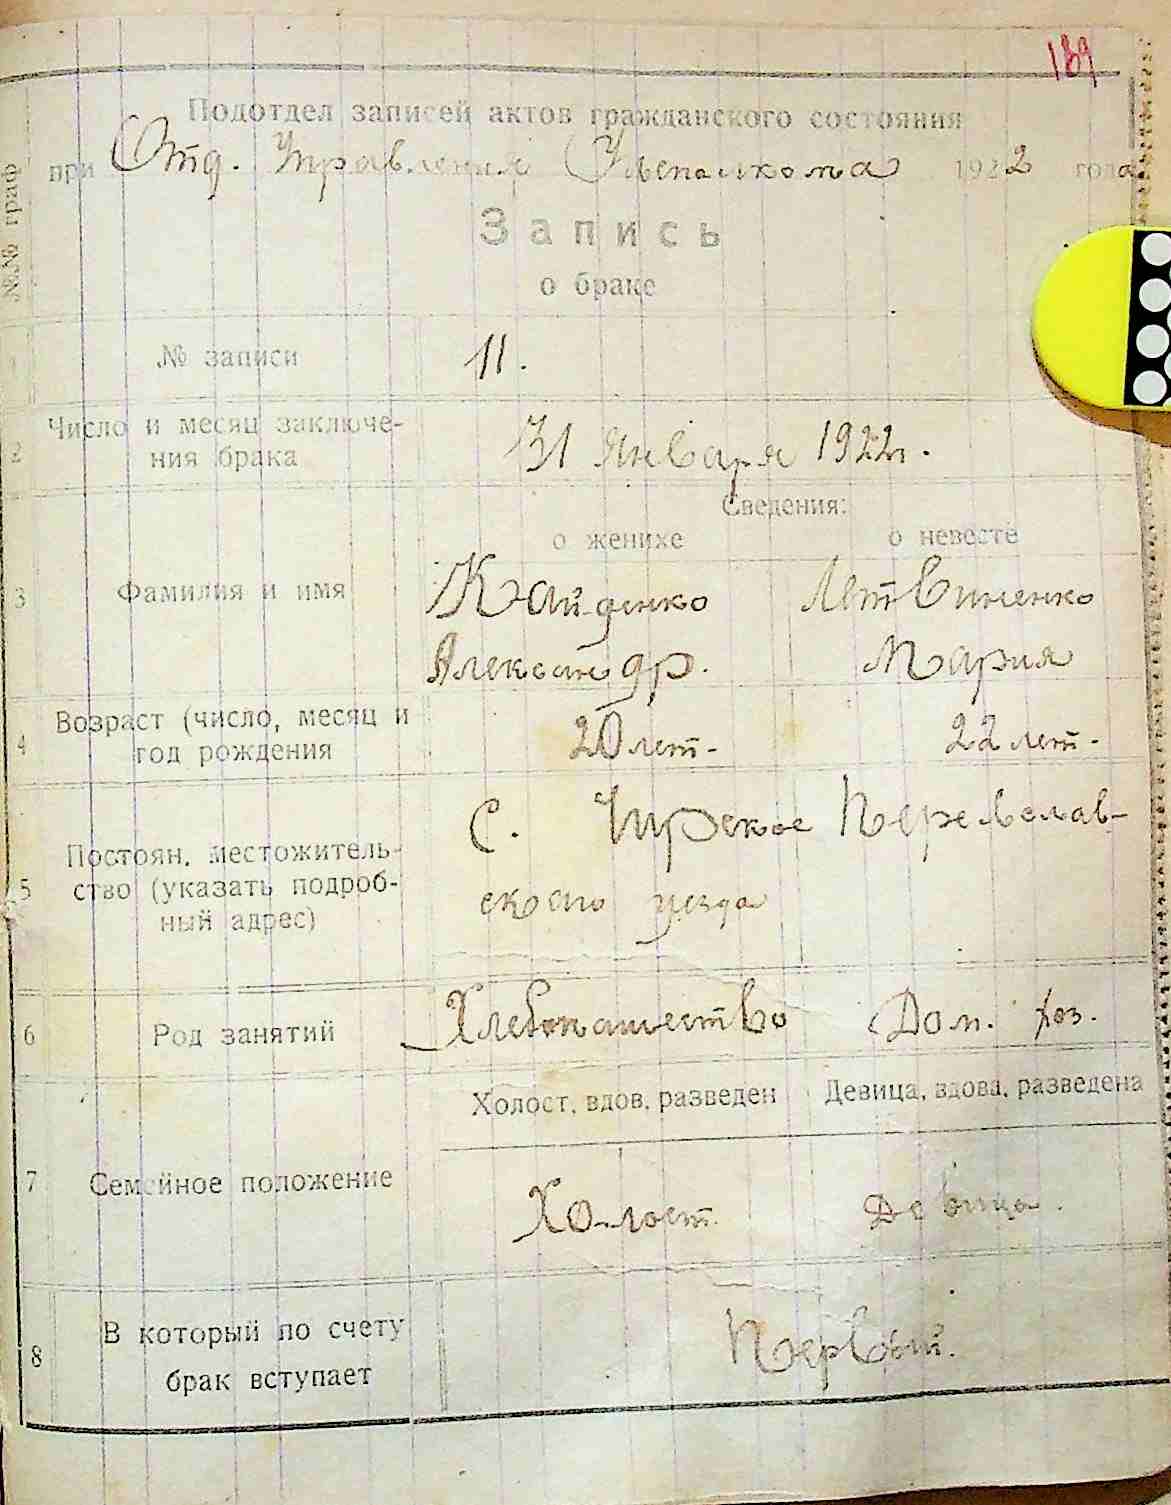 189
Подотдел записей актов гражданского состояния
при Отд. Управления 1922 года
№№ граф
Запись
о браке
1 № записи 11.
2 Число и месяц заключе-
ния брака 31 Января 1922 г.
Сведения:
о женихе о невесте
3 Фамилия и имя Кайденко Литвиненко
Александр. Мария
4 Возраст (число, месяц и
год рождения 20 лет. 22 лет.
5 Постоян. местожитель-
ство (указать подроб-
ный адрес)
С. Переяслав-
скаго уезда
6 Род занятий Хлебопашество Дом. хоз.
Холост, вдов, разведен Девица, вдова, разведена
7 Семейное положение Холост. Девица.
8 В который по счету
брак вступает Первый.